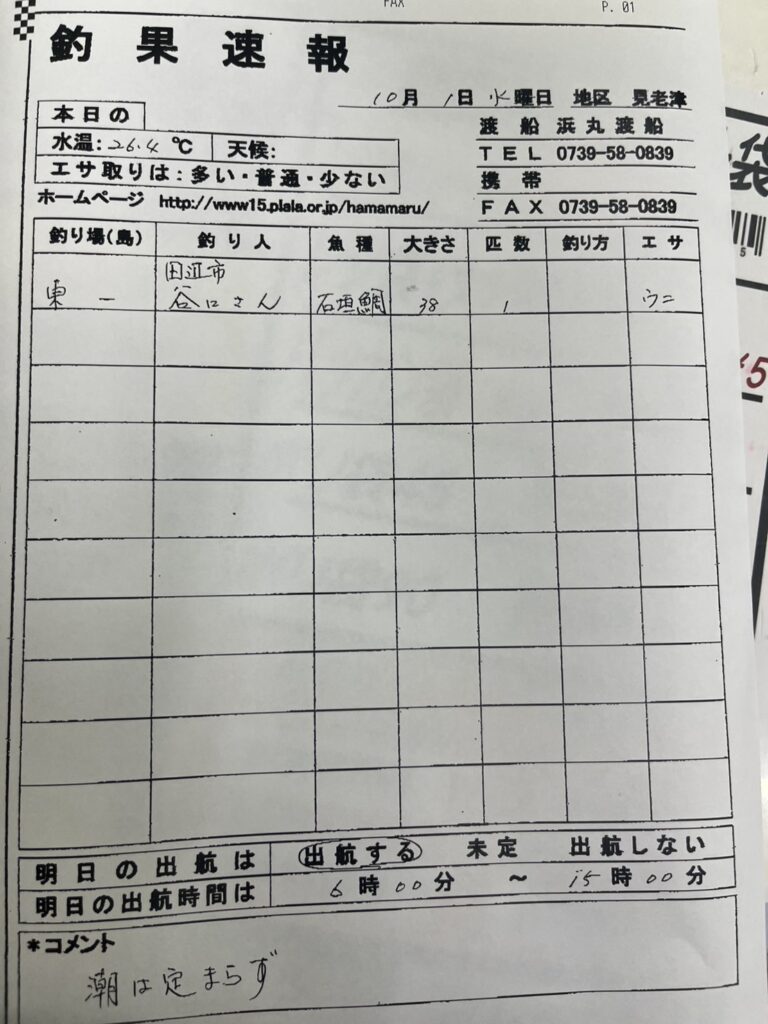 FAX P. 01
釣果速報
10月 1日 水曜日 地区 見老津
本日の
水温:26.4℃ 天候:
エサ取りは:多い・普通・少ない
ホームページ http://www15.plala.or.jp/hamamaru/
渡船 浜丸渡船
TEL 0739-58-0839
携帯
FAX 0739-58-0839
釣り場(島) 釣り人 魚種 大きさ 匹数 釣り方 エサ
田辺市
東一 谷口さん 石垣鯛 38 1 ウニ
明日の出航は 出航する 未定 出航しない
明日の出航時間は 6時00分 ~ 15時00分
*コメント
潮は定まらず
袋
5